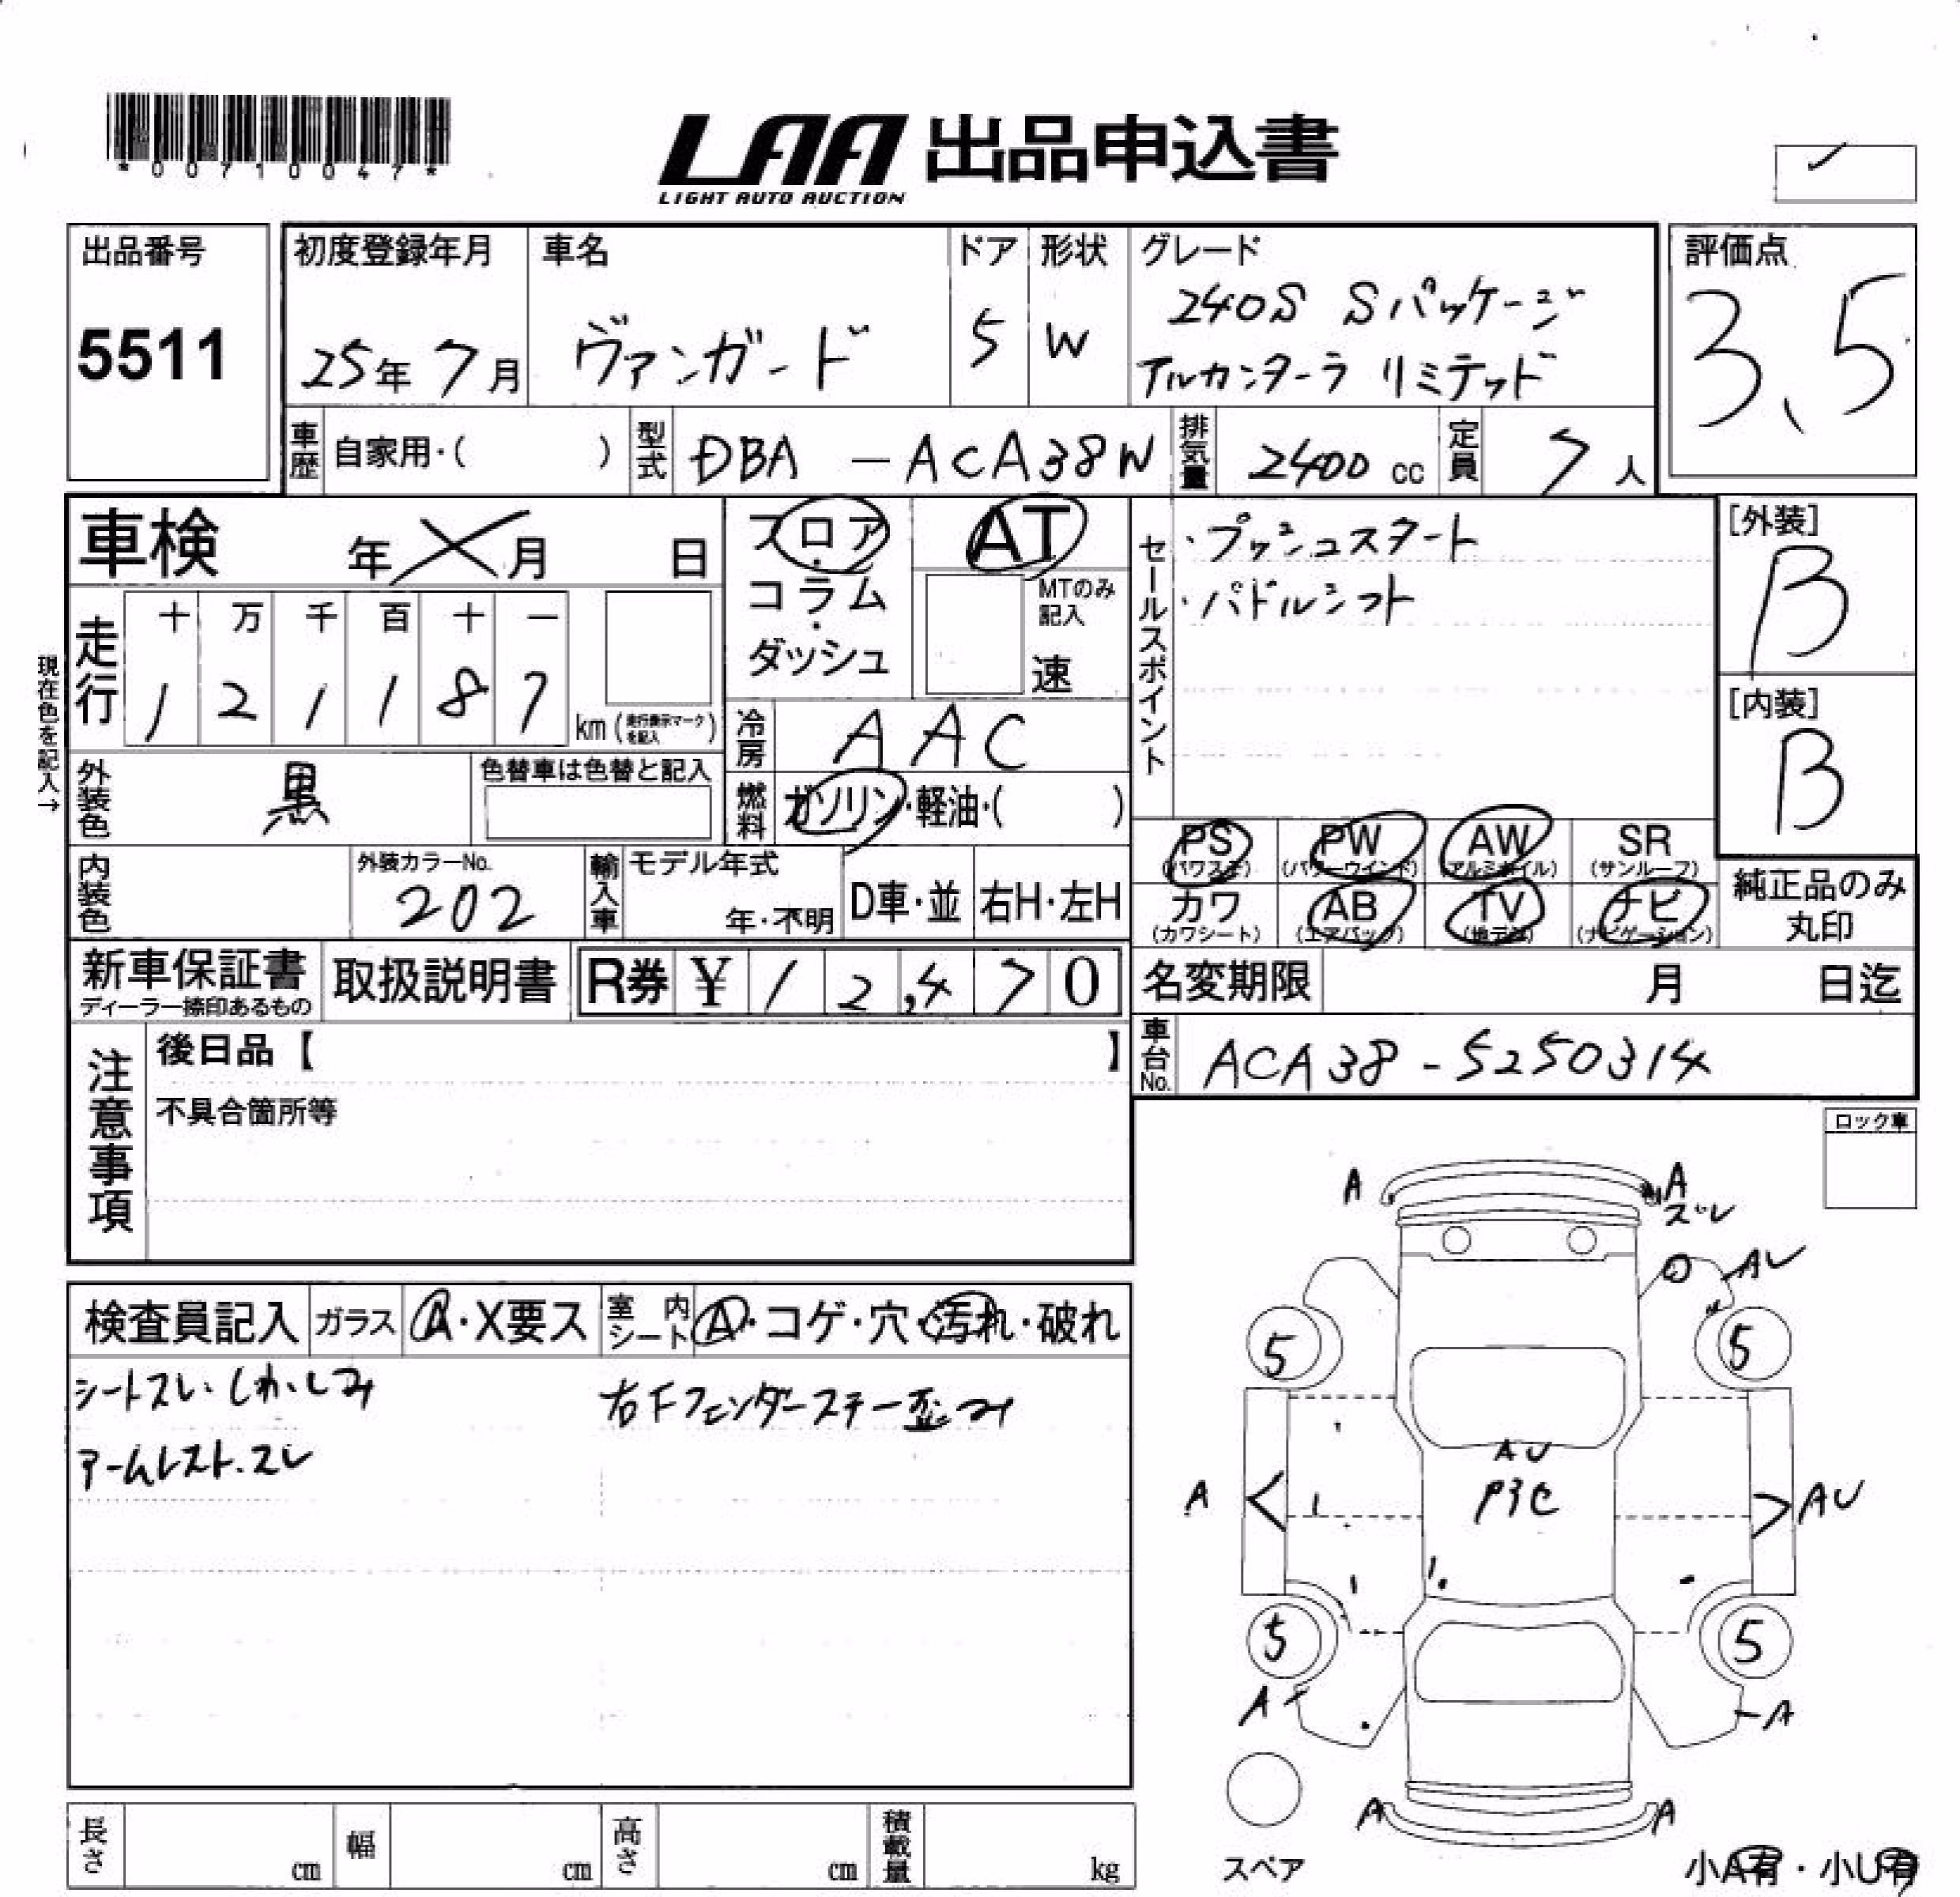 *00710047*
LAA 出品申込書
LIGHT AUTO AUCTION
出品番号
5511
初度登録年月
25年7月
車名
ヴァンガード
ドア
5
形状
W
グレード
240S Sパッケージ
アルカンターラ リミテッド
評価点
3.5
車歴
自家用・( )
型式
DBA-ACA38W
排気量
2400 cc
定員
7人
車検 年 月 日
フロア・
コラム・
ダッシュ
AT
MTのみ
記入
速
セールスポイント
・プッシュスタート
・パドルシフト
[外装]
B
[内装]
B
現在色を記入→
走行
十 万 千 百 十 一
1 2 1 1 8 7
km (走行表示マークを記入)
冷房
AAC
外装色
黒
色替車は色替と記入
燃料
ガソリン・軽油・( )
PS
(パワステ)
PW
(パワーウインド)
AW
(アルミホイル)
SR
(サンルーフ)
カワ
(カワシート)
AB
(エアバック)
TV
(地デジ)
ナビ
(ナビゲーション)
純正品のみ
丸印
内装色
外装カラーNo.
202
輸入車
モデル年式
年・不明
D車・並
右H・左H
新車保証書
ディーラー捺印あるもの
取扱説明書
R券 ¥12,470
名変期限 月 日迄
車台No.
ACA38-5250314
注意事項
後日品【 】
不具合箇所等
ロック車
検査員記入
ガラス
A・X要ス
室内シート
A・コゲ・穴・汚れ・破れ
シートスレ・しわ・しみ
右Fフェンダーステー歪み
アームレスト.スレ
A
A
ズレ
AU
5
5
AU
P3C
A
AU
5
5
A
A
A
A
スペア
小A有・小U有
長さ cm
幅 cm
高さ cm
積載量 kg